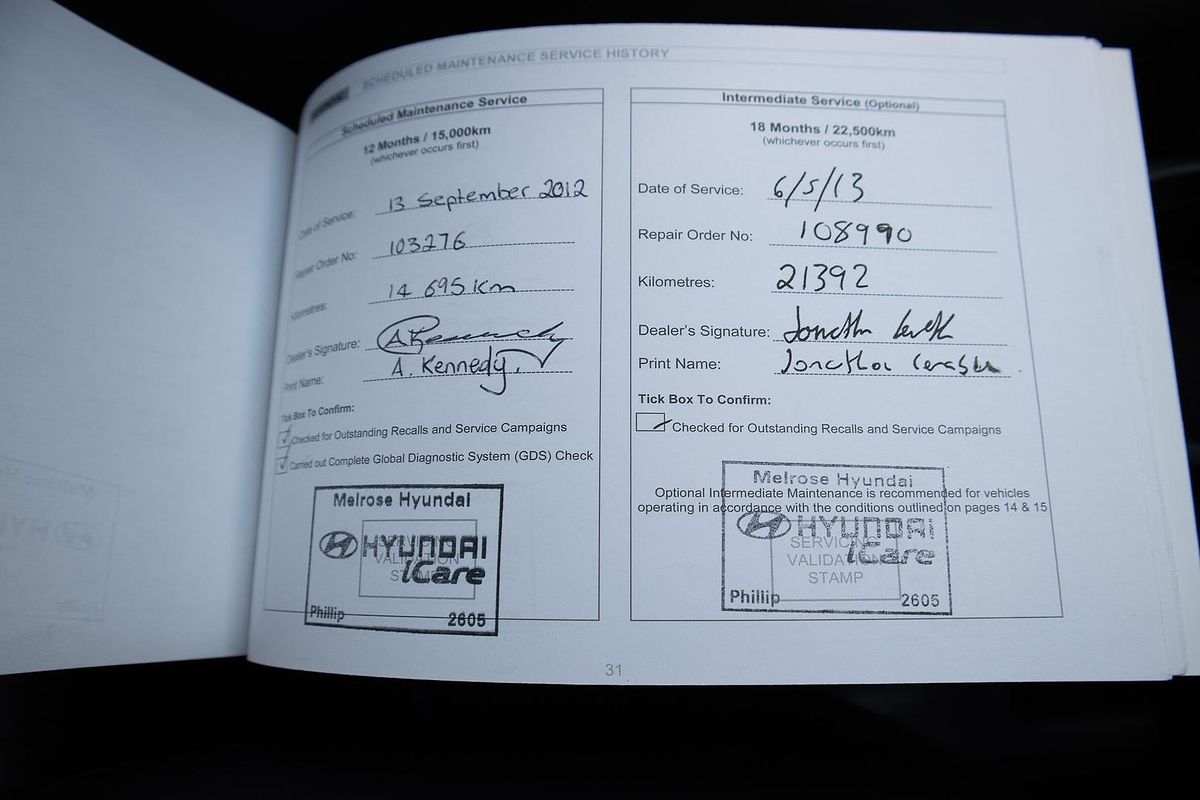 SCHEDULED MAINTENANCE SERVICE HISTORY
Scheduled Maintenance Service
12 Months / 15,000km
(whichever occurs first)
Date of Service: 13 September 2012
Repair Order No: 103276
Kilometres: 14 695 km
Dealer's Signature: A Kennedy
Print Name: A. Kennedy.
Tick Box To Confirm:
Checked for Outstanding Recalls and Service Campaigns
Carried out Complete Global Diagnostic System (GDS) Check
Melrose Hyundai
HYUNDAI
SERVICING
VALIDATION
iCare
STAMP
Phillip 2605
Intermediate Service (Optional)
18 Months / 22,500km
(whichever occurs first)
Date of Service: 6/5/13
Repair Order No: 108990
Kilometres: 21392
Dealer's Signature:
Print Name:
Tick Box To Confirm:
Checked for Outstanding Recalls and Service Campaigns
Melrose Hyundai
Optional Intermediate Maintenance is recommended for vehicles
operating in accordance with the conditions outlined on pages 14 & 15
HYUNDAI
SERVICING
iCare
VALIDATION
STAMP
Phillip 2605
31